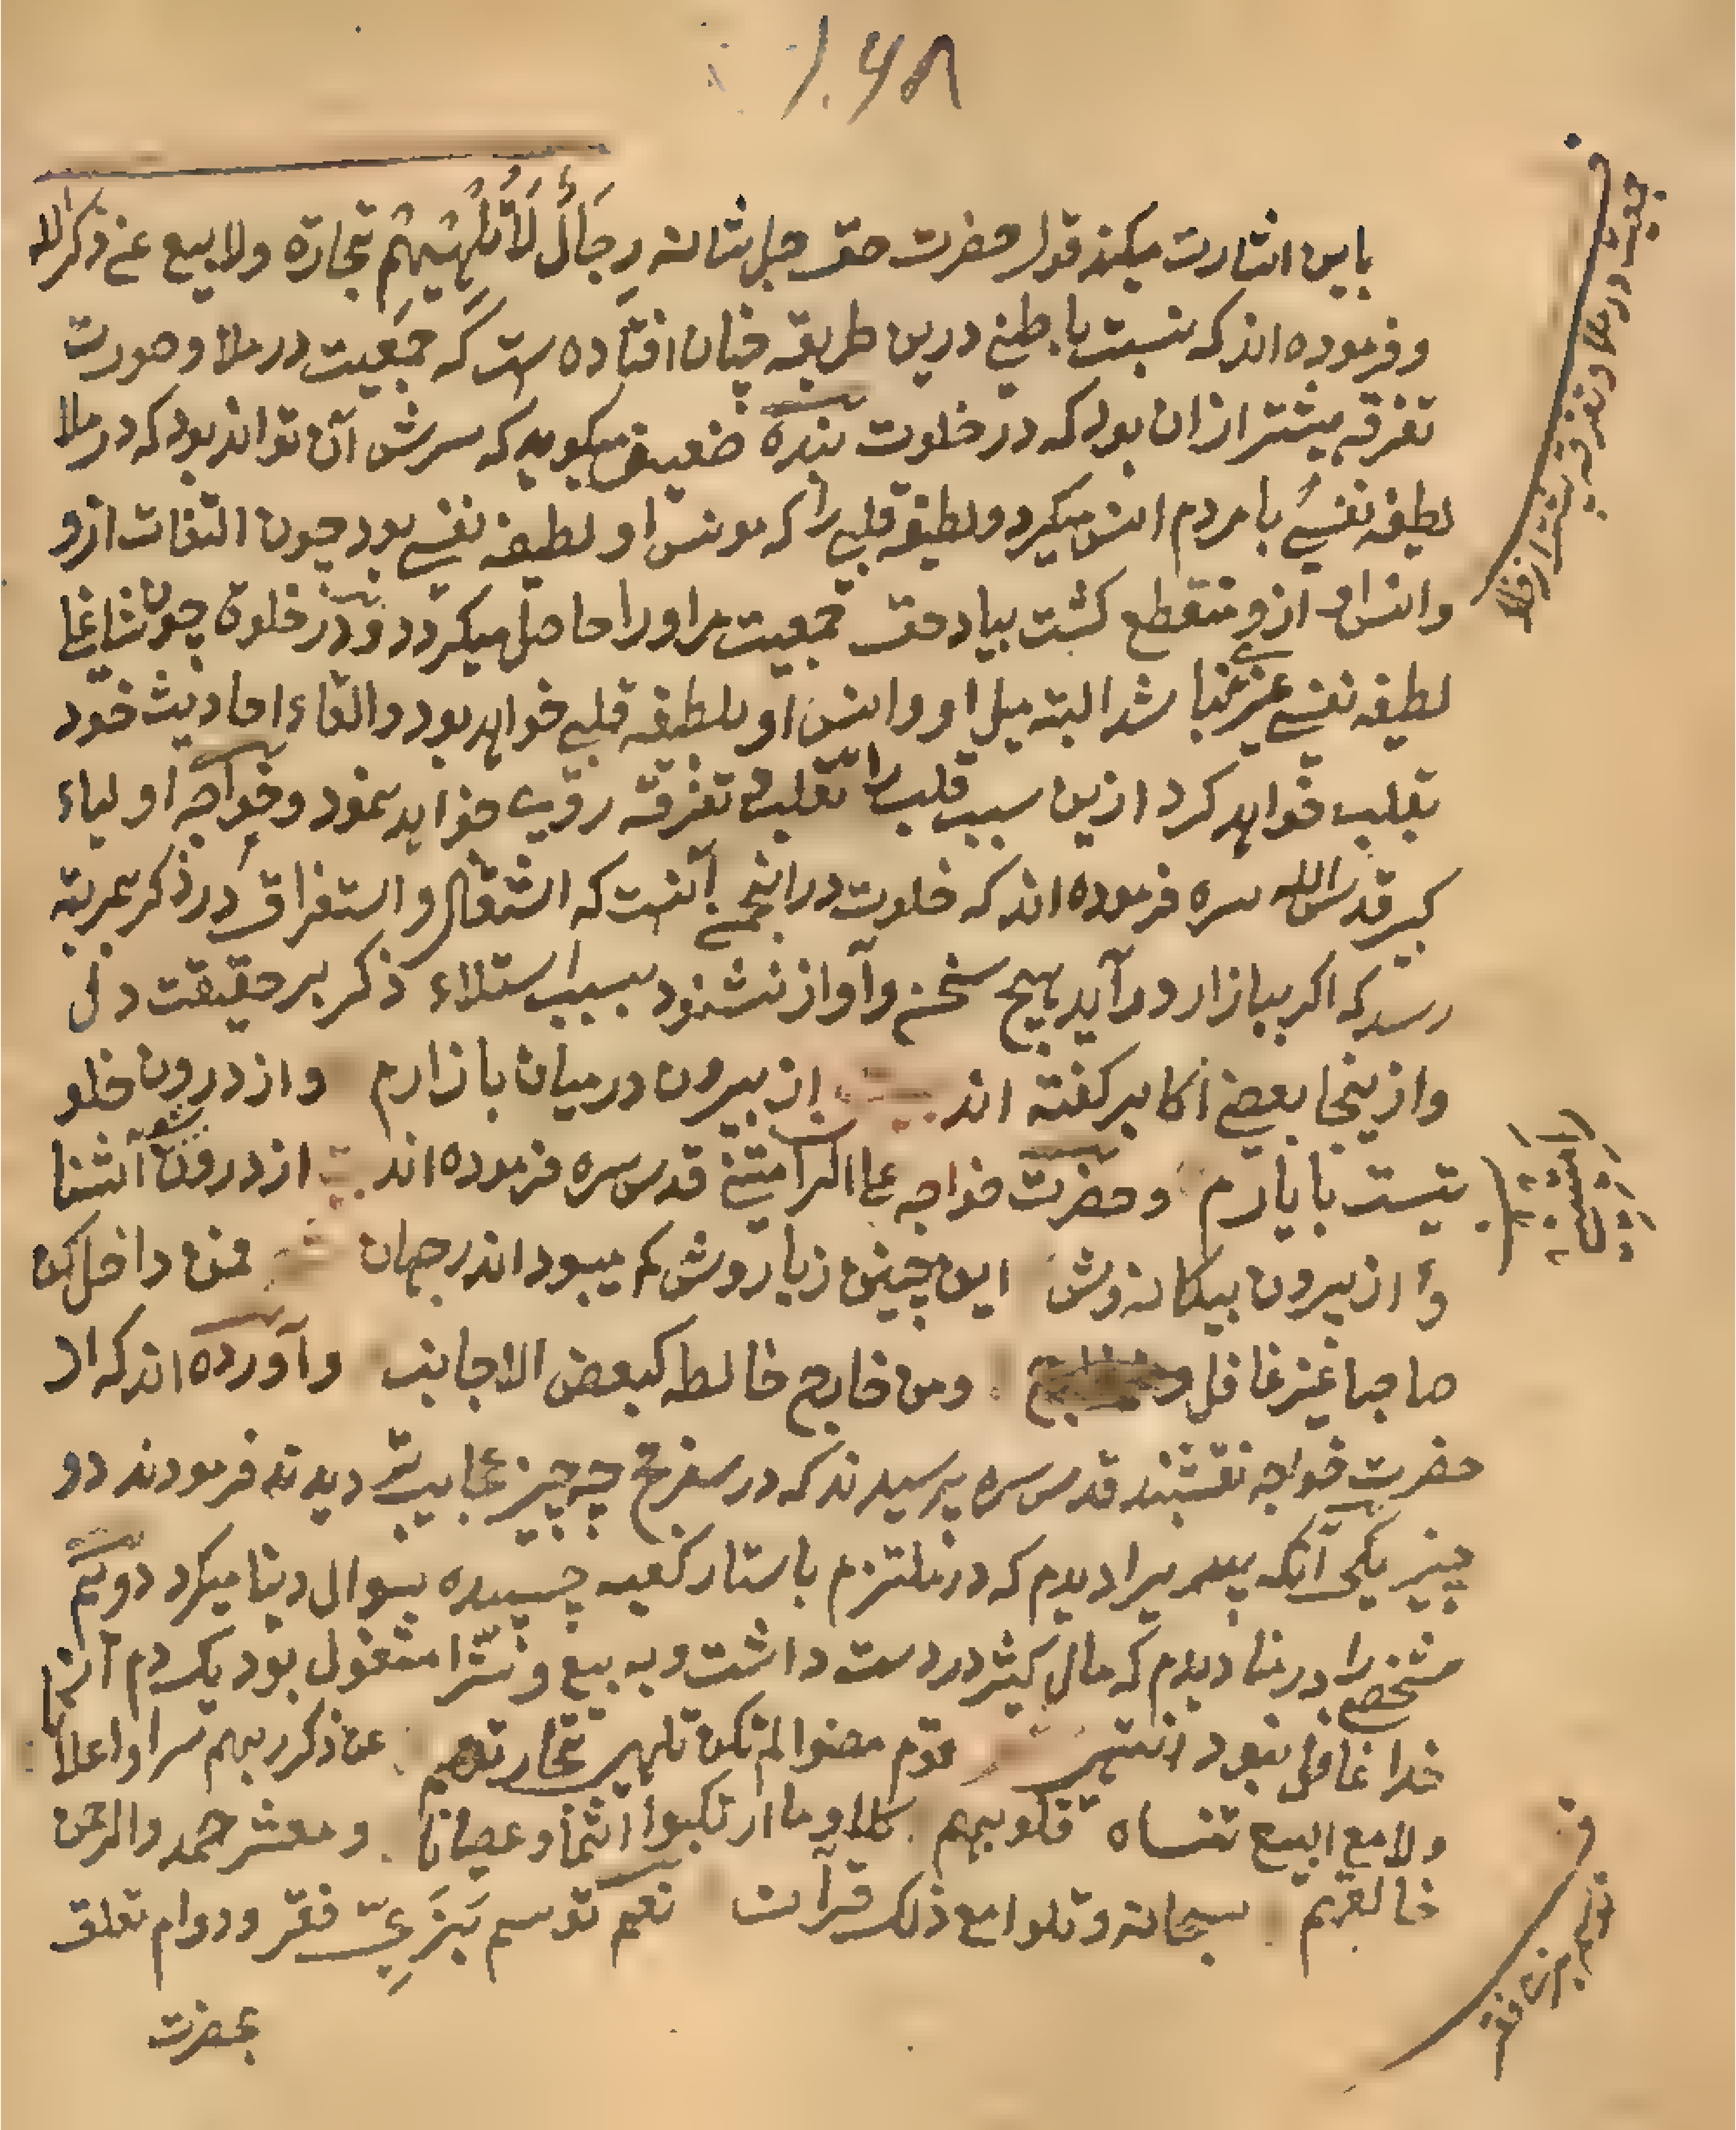 ۱۰۶۸
باین اشارت میکند قول حضرت حق جل شانه رِجَالٌ لَا تُلْهِيهِمْ تجارة ولا بیع عن ذکر الله
و فرموده اند که نسبت باطنی درین طریقه چنان افتاده ست که جمعیت در ملا و صورت
تفرقه بیشتر ازان بود که در خلوت بنده ضعیف میکوید که سرش آن تواند بود که در ملا
لطیفه نفسی با مردم انس میکیرد و لطیفه قلبی را که مونس او لطیفه نفسی بود چون التفات ازو
وانس او ازو منقطع کشت بیاد حق جمعیت مر او را حاصل میکردد و در خلوة چون شاغلی
لطیفه نفسی غیر نباشد البته میل او وانس او بلطیفه قلبی خواهد بود والقاء احادیث خود
بقلب خواهد کرد ازین سبب قلب را تفرقه روی خواهد نمود و خواجه اولیاء
کبیر قدس الله سره فرموده اند که خلوت در انجمن آنست که اشتغال و استغراق در ذکر بمرتبه
رسد که اکر ببازار در آید هیچ سخن و آواز نشنود بسبب استلاء ذکر بر حقیقت دل
و ازینجا بعضی اکابر کفته اند بیت از بیرون در میان بازارم و از درون خلو
تیست با یارم و حضرت خواجه علی الرامتنی قدس سره فرموده اند بیت از درون شو آشنا
و از بیرون بیکانه وش این چنین زیبا روش کم میبود اندر جهان شعر فمن داخل کن
صاحبا غیر غافل و من خارج خالط کبعض الاجانب و آورده اند که از
حضرت خواجه نقشبند قدس سره پرسیدند که در سفر حج چه چیز عجایب دیدید فرمودند دو
چیز یکی آنکه پیر را دیدم که در ملتزم باستار کعبه چسپیده سوال دنیا میکرد دویم
شخصی را در منا دیدم که مال کثیر در دست داشت و به بیع و شرا مشغول بود یک دم از
خدا غافل نبود انتهی شعر قوم مضوا لم تکن تلهیهم تجارتهم عن ذکر ربهم سرا و اعلانا
ولا مع البیع تنساه قلوبهم کلا وما ارتکبوا اثما وعصیانا و معشر حمدوا الرحمن
خالقهم سبحانه وتلوا مع ذلک قرآنا نعم توسم بَزِیِّ فقر و دوام تعلق
بحضرت
جمعیت در ملا و تفرقه بیشتر از خلا
رامتنی
توسم بزی فقر